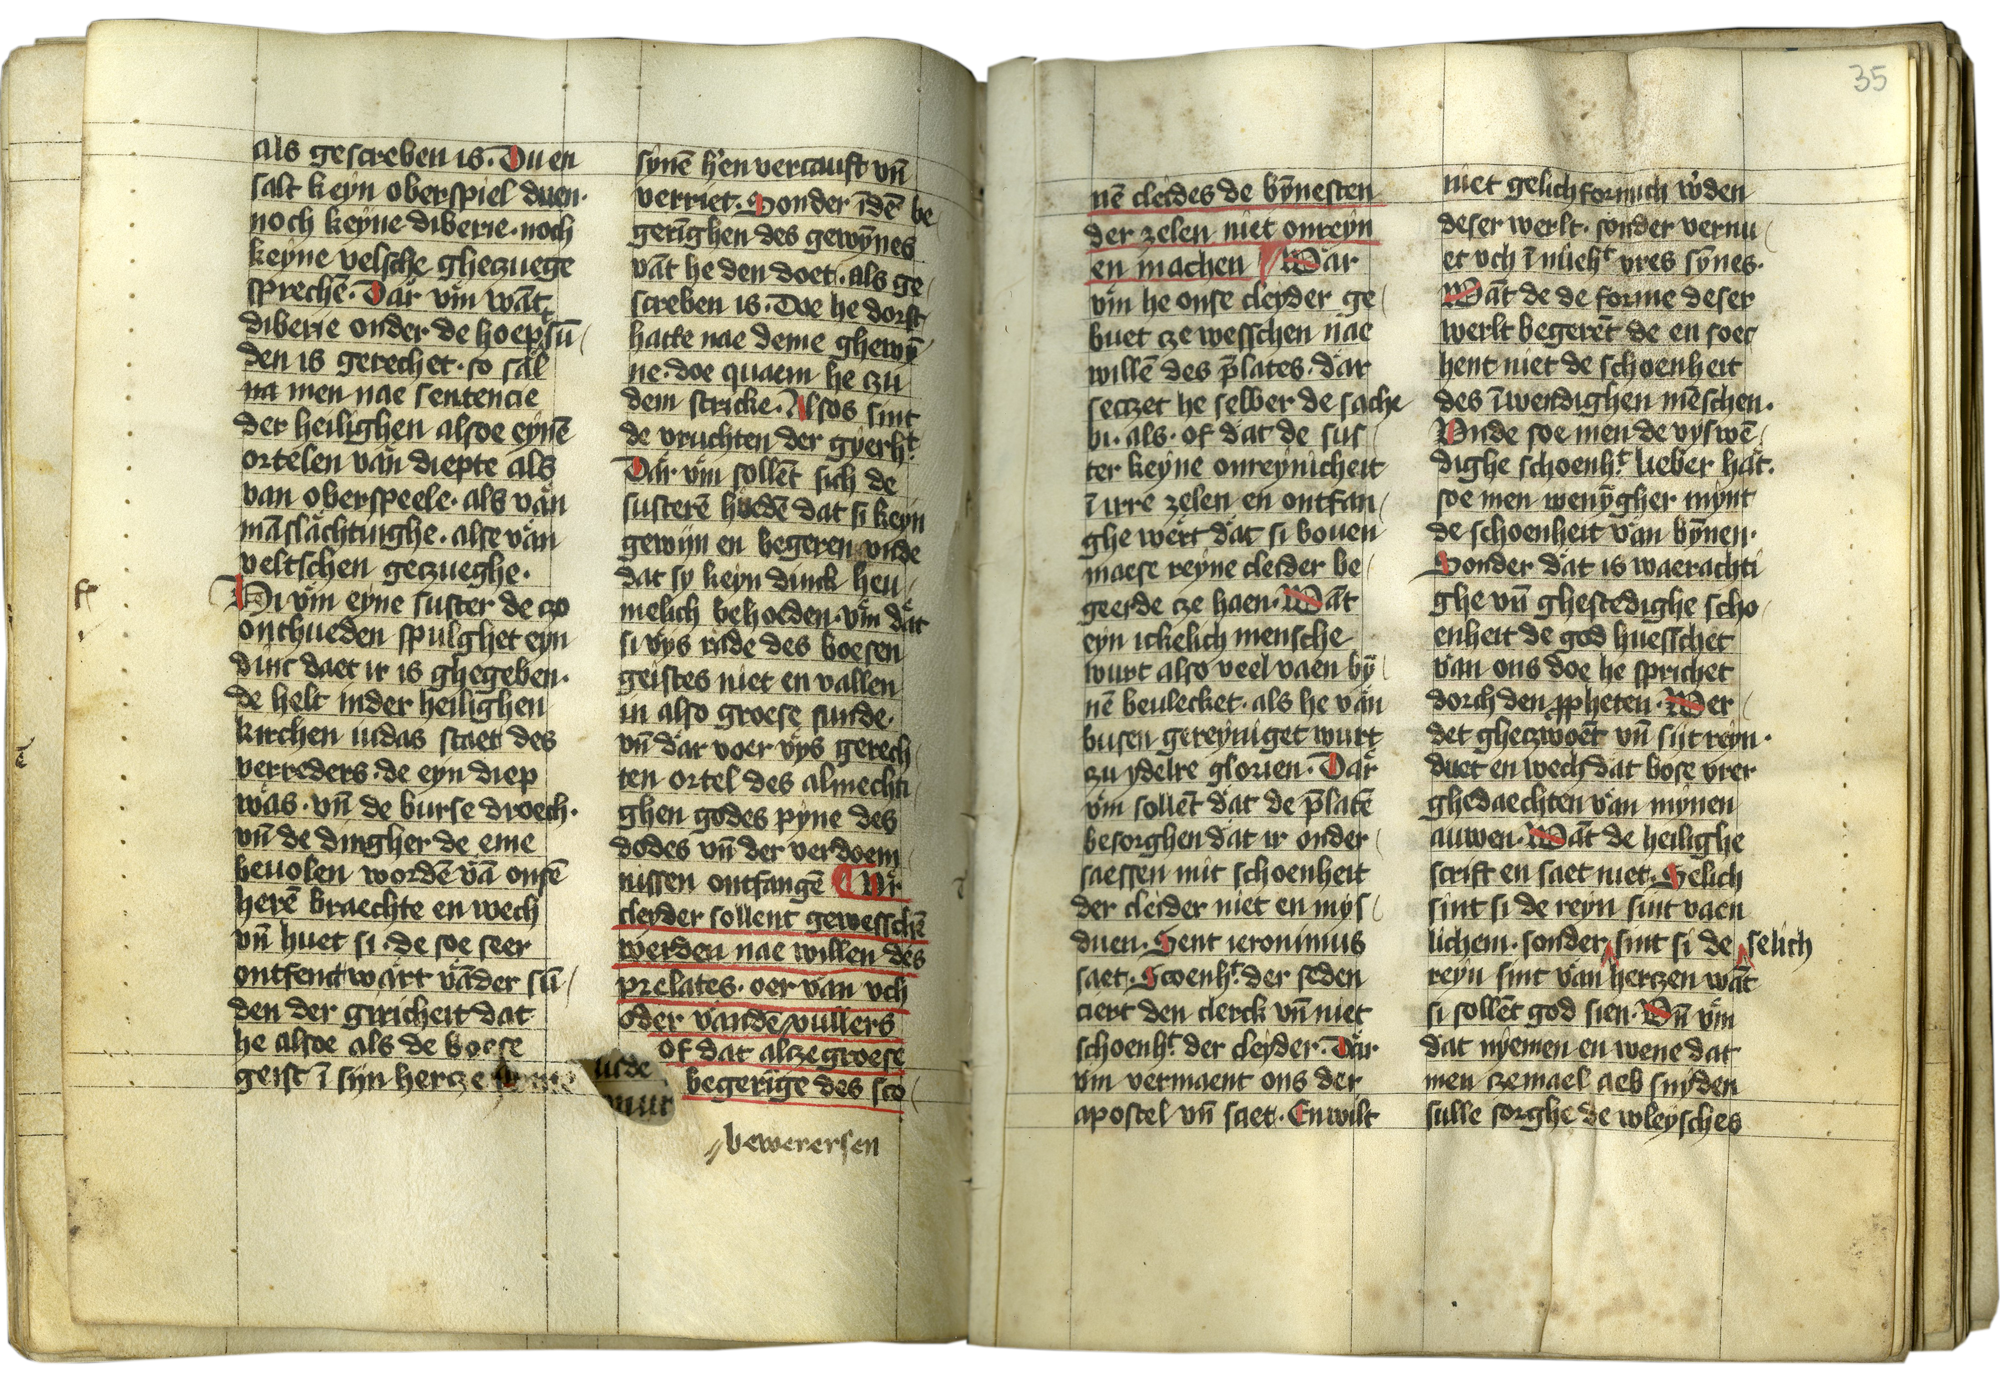 als gescreben is. Du en
salt keyn oberspiel duen.
noch keyne diberie. noch
keyne velsche ghetzuege
sprechē. Dar vm̄ wāt
diberie onder de hoepsū
den is gerechet. so sal
na men nae sentencie
der heilighen alsoe eynē
ortelen van diepte als
van oberspeele. als van
māslachtinghe. alse van
veltschen getzueghe.
Wi vm̄ eyne suster de tzo
onthueden spulghet eyn
dinc daet ir is ghegeben.
de helt inder heilighen
kirchen iudas staet des
verreders. de eyn diep
was. vn̄ de burse droech.
vn̄ de dingher de eme
beuolen wordē vā onsē
herē braechte en wech
vn̄ huet si. de soe seer
ontfenct wart vāder sū
den der giricheit dat
he alsoe als de boese
geist ī sijn hertze
synē h'en vercauft vn̄
verriet. Sonder īdē be
gerīghen des gewȳnes
vāt he den doet. als ge
screben is. Doe he dorst
hatte nae deme ghewȳ
ne. doe quaem he zu
dem stricke. Alsos sint
de vruchten der gyerht.
Dar vm̄ sollēt sich de
susterē huedē dat si keyn
gewijn en begeren vnde
dat sy keyn dinck heu
melich behoeden. vm̄ dat
si vys rade des boesen
geistes niet en vallen
in also groese sunde.
vn̄ dar voer vys gerech
ten ortel des almechti
ghen godes pyne des
dodes vn̄ der verdoem
nissen ontfangē Vr
cleyder sollent gewesschē
werden nae willen des
prelates. oer van vch
oder vandē vullers
of dat altze groese
begerige des sco
bewerersen
35
nē cleides de bȳnesten
der zelen niet onreyn
en machen War
vm̄ he onse cleyder ge
buet tze wesschen nae
willē des p̄lates. dar
setzet he selber de sache
bi. als. of dat de sus
ter keyne onreynicheit
ī irre zelen en ontfan
ghe wert dat si bouen
maese reyne cleider be
geerde tze haen. Wāt
eyn ickelich mensche
wurt also veel vaen bȳ
nē beulecket. als he van
busen gereyniget wurt
zu ydelre glorien. Dar
vm̄ sollēt dat de p̄latē
besorghen dat ir onder
saessen mit schoenheit
der cleider niet en mys
duen. Sent ieronimus
saet. Scoenht. der seden
ciert den clerck vn̄ niet
schoenht. der cleyder. Dar
vm̄ vermaent ons der
apostel vn̄ saet. En wilt
niet gelichformich w'den
deser werlt. sonder vernu
et vch ī nueht vres sȳnes.
Wāt de de forme deser
werlt begerēt de en soec
hent niet de schoenheit
des īwendighen mēschen.
Vnde soe men de vyswē
dighe schoenht. lieber hāt.
soe men wenȳgher mynt
de schoenheit van bȳnen.
Sonder dat is waerachti
ghe vn̄ ghestedighe scho
enheit de god huesschet
van ons doe he sprichet
dorch den ꝓpheten. Wer
det ghetzwoēt vn̄ sijt reyn.
duet en wech dat bose vrer
ghedaechten van mynen
auwen. Wāt de heilighe
scrift en saet niet. Selich
sint si de reyn sint vaen
lichem. sonder sint si de selich
reyn sint van hertzen wāt
si sollēt god sien. Vn̄ vm̄
dat nyemen en wene dat
men tzemael aeb snyden
sulle sorghe de wleysches